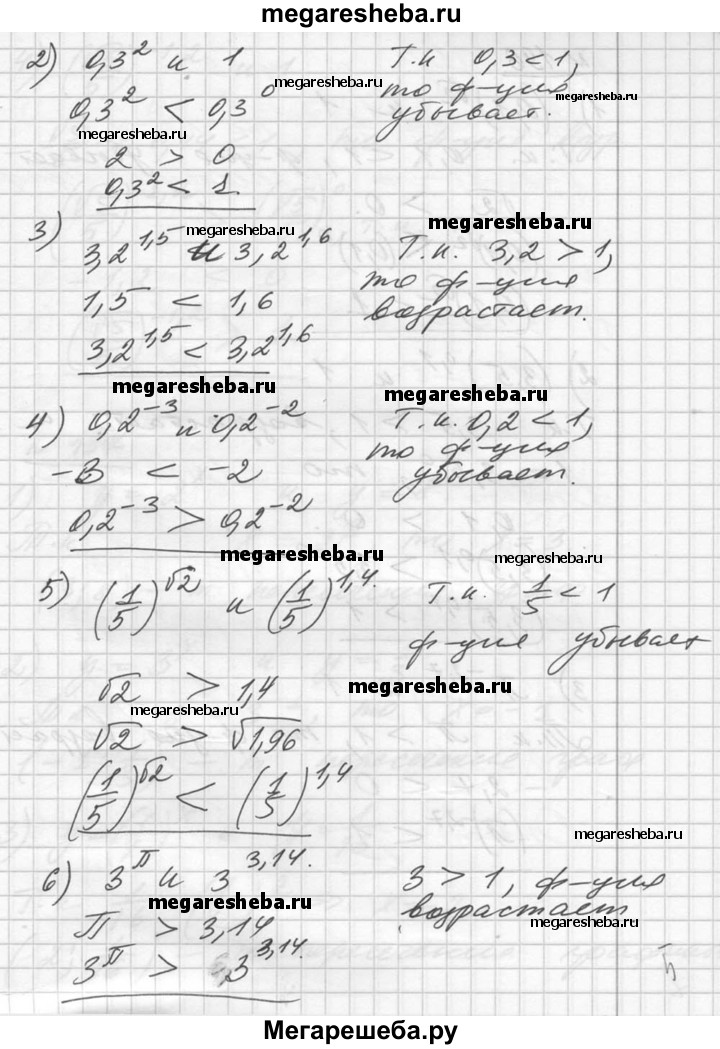 megaresheba.ru
2) 0,3² и 1 Т.к 0,3 < 1,
megaresheba.ru
0,3² < 0,3⁰ то ф-ция
megaresheba.ru
убывает.
megaresheba.ru
2 > 0
0,3² < 1.
3) 3,2^1,5 и 3,2^1,6 Т.к. 3,2 > 1,
megaresheba.ru
megaresheba.ru
то ф-ция
1,5 < 1,6 возрастает.
3,2^1,5 < 3,2^1,6
megaresheba.ru
megaresheba.ru
4) 0,2⁻³ и 0,2⁻² Т.к. 0,2 < 1,
то ф-ция
-3 < -2 убывает.
0,2⁻³ > 0,2⁻²
megaresheba.ru
megaresheba.ru
5) (1/5)^√2 и (1/5)^1,4. Т.к. 1/5 < 1
ф-ция убывает
√2 > 1,4
megaresheba.ru
megaresheba.ru
√2 > √1,96
(1/5)^√2 < (1/5)^1,4
megaresheba.ru
6) 3^π и 3^3,14. 3 > 1, ф-ция
megaresheba.ru
возрастает
π > 3,14
3^π > 3^3,14.
megaresheba.ru
Мегарешеба.ру